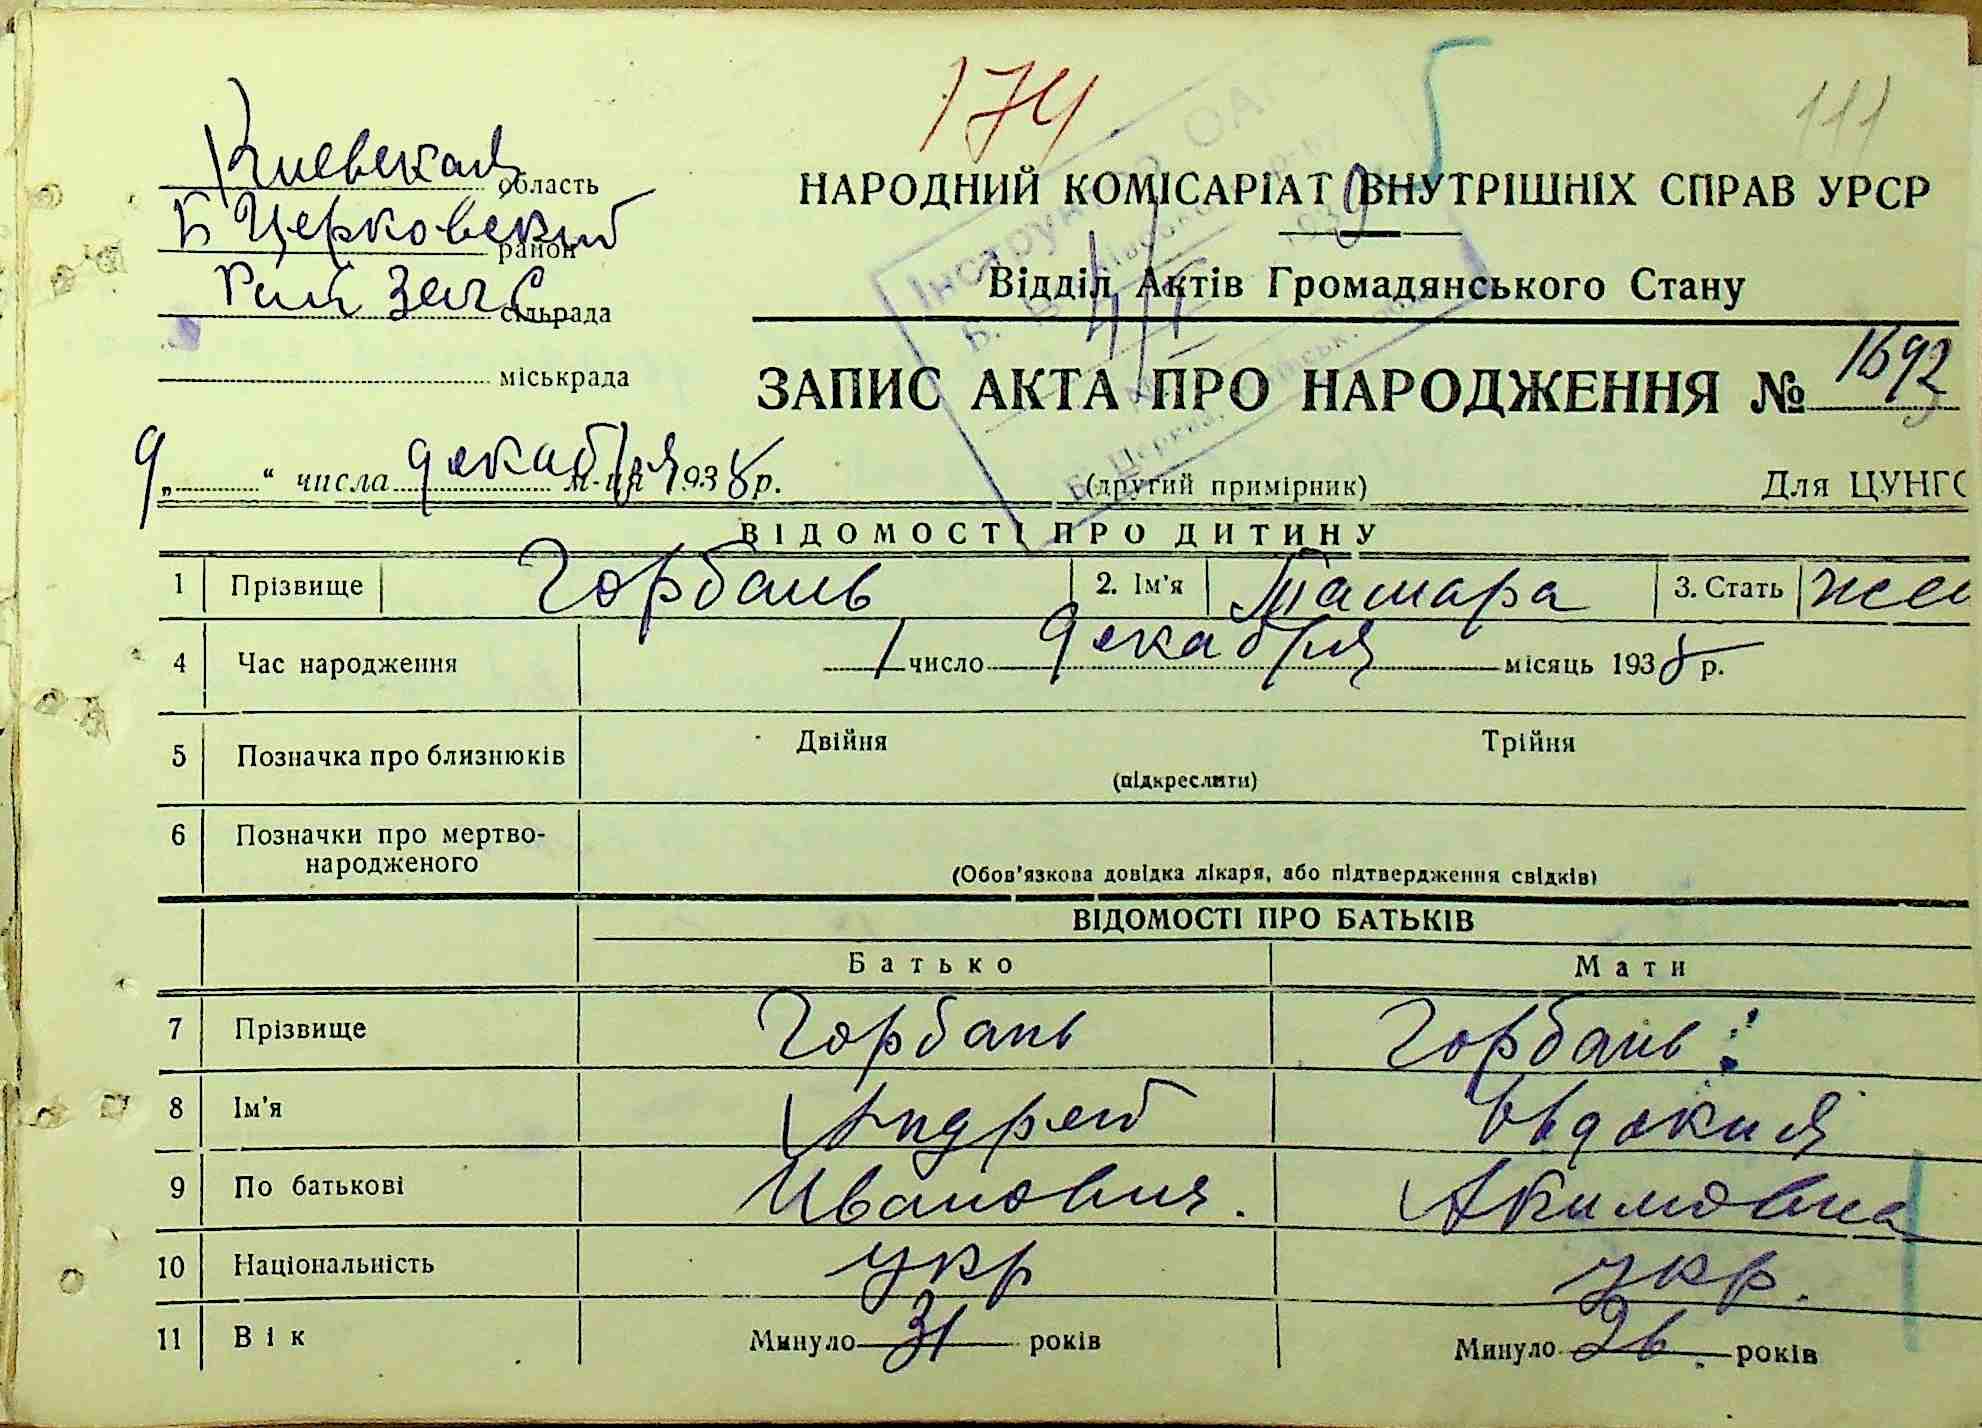 174
111
Киевская область
Б Церковский район
Рай Загс сільрада
міськрада
НАРОДНИЙ КОМІСАРІАТ ВНУТРІШНІХ СПРАВ УРСР
Відділ Актів Громадянського Стану
ЗАПИС АКТА ПРО НАРОДЖЕННЯ № 1693
9 „ “ числа декабря м-ця 1938 р.
(другий примірник)
Для ЦУНГО
ВІДОМОСТІ ПРО ДИТИНУ
1 Прізвище Горбань 2. Ім’я Тамара 3. Стать жен
4 Час народження 1 число декабря місяць 1938 р.
5 Позначка про близнюків Двійня Трійня
(підкреслити)
6 Позначки про мертво-
народженого
(Обов’язкова довідка лікаря, або підтвердження свідків)
ВІДОМОСТІ ПРО БАТЬКІВ
Батько Мати
7 Прізвище Горбань Горбань
8 Ім’я Андрей Евдокия
9 По батькові Иванович. Акимовна
10 Національність укр укр.
11 Вік Минуло 31 років Минуло 26 років